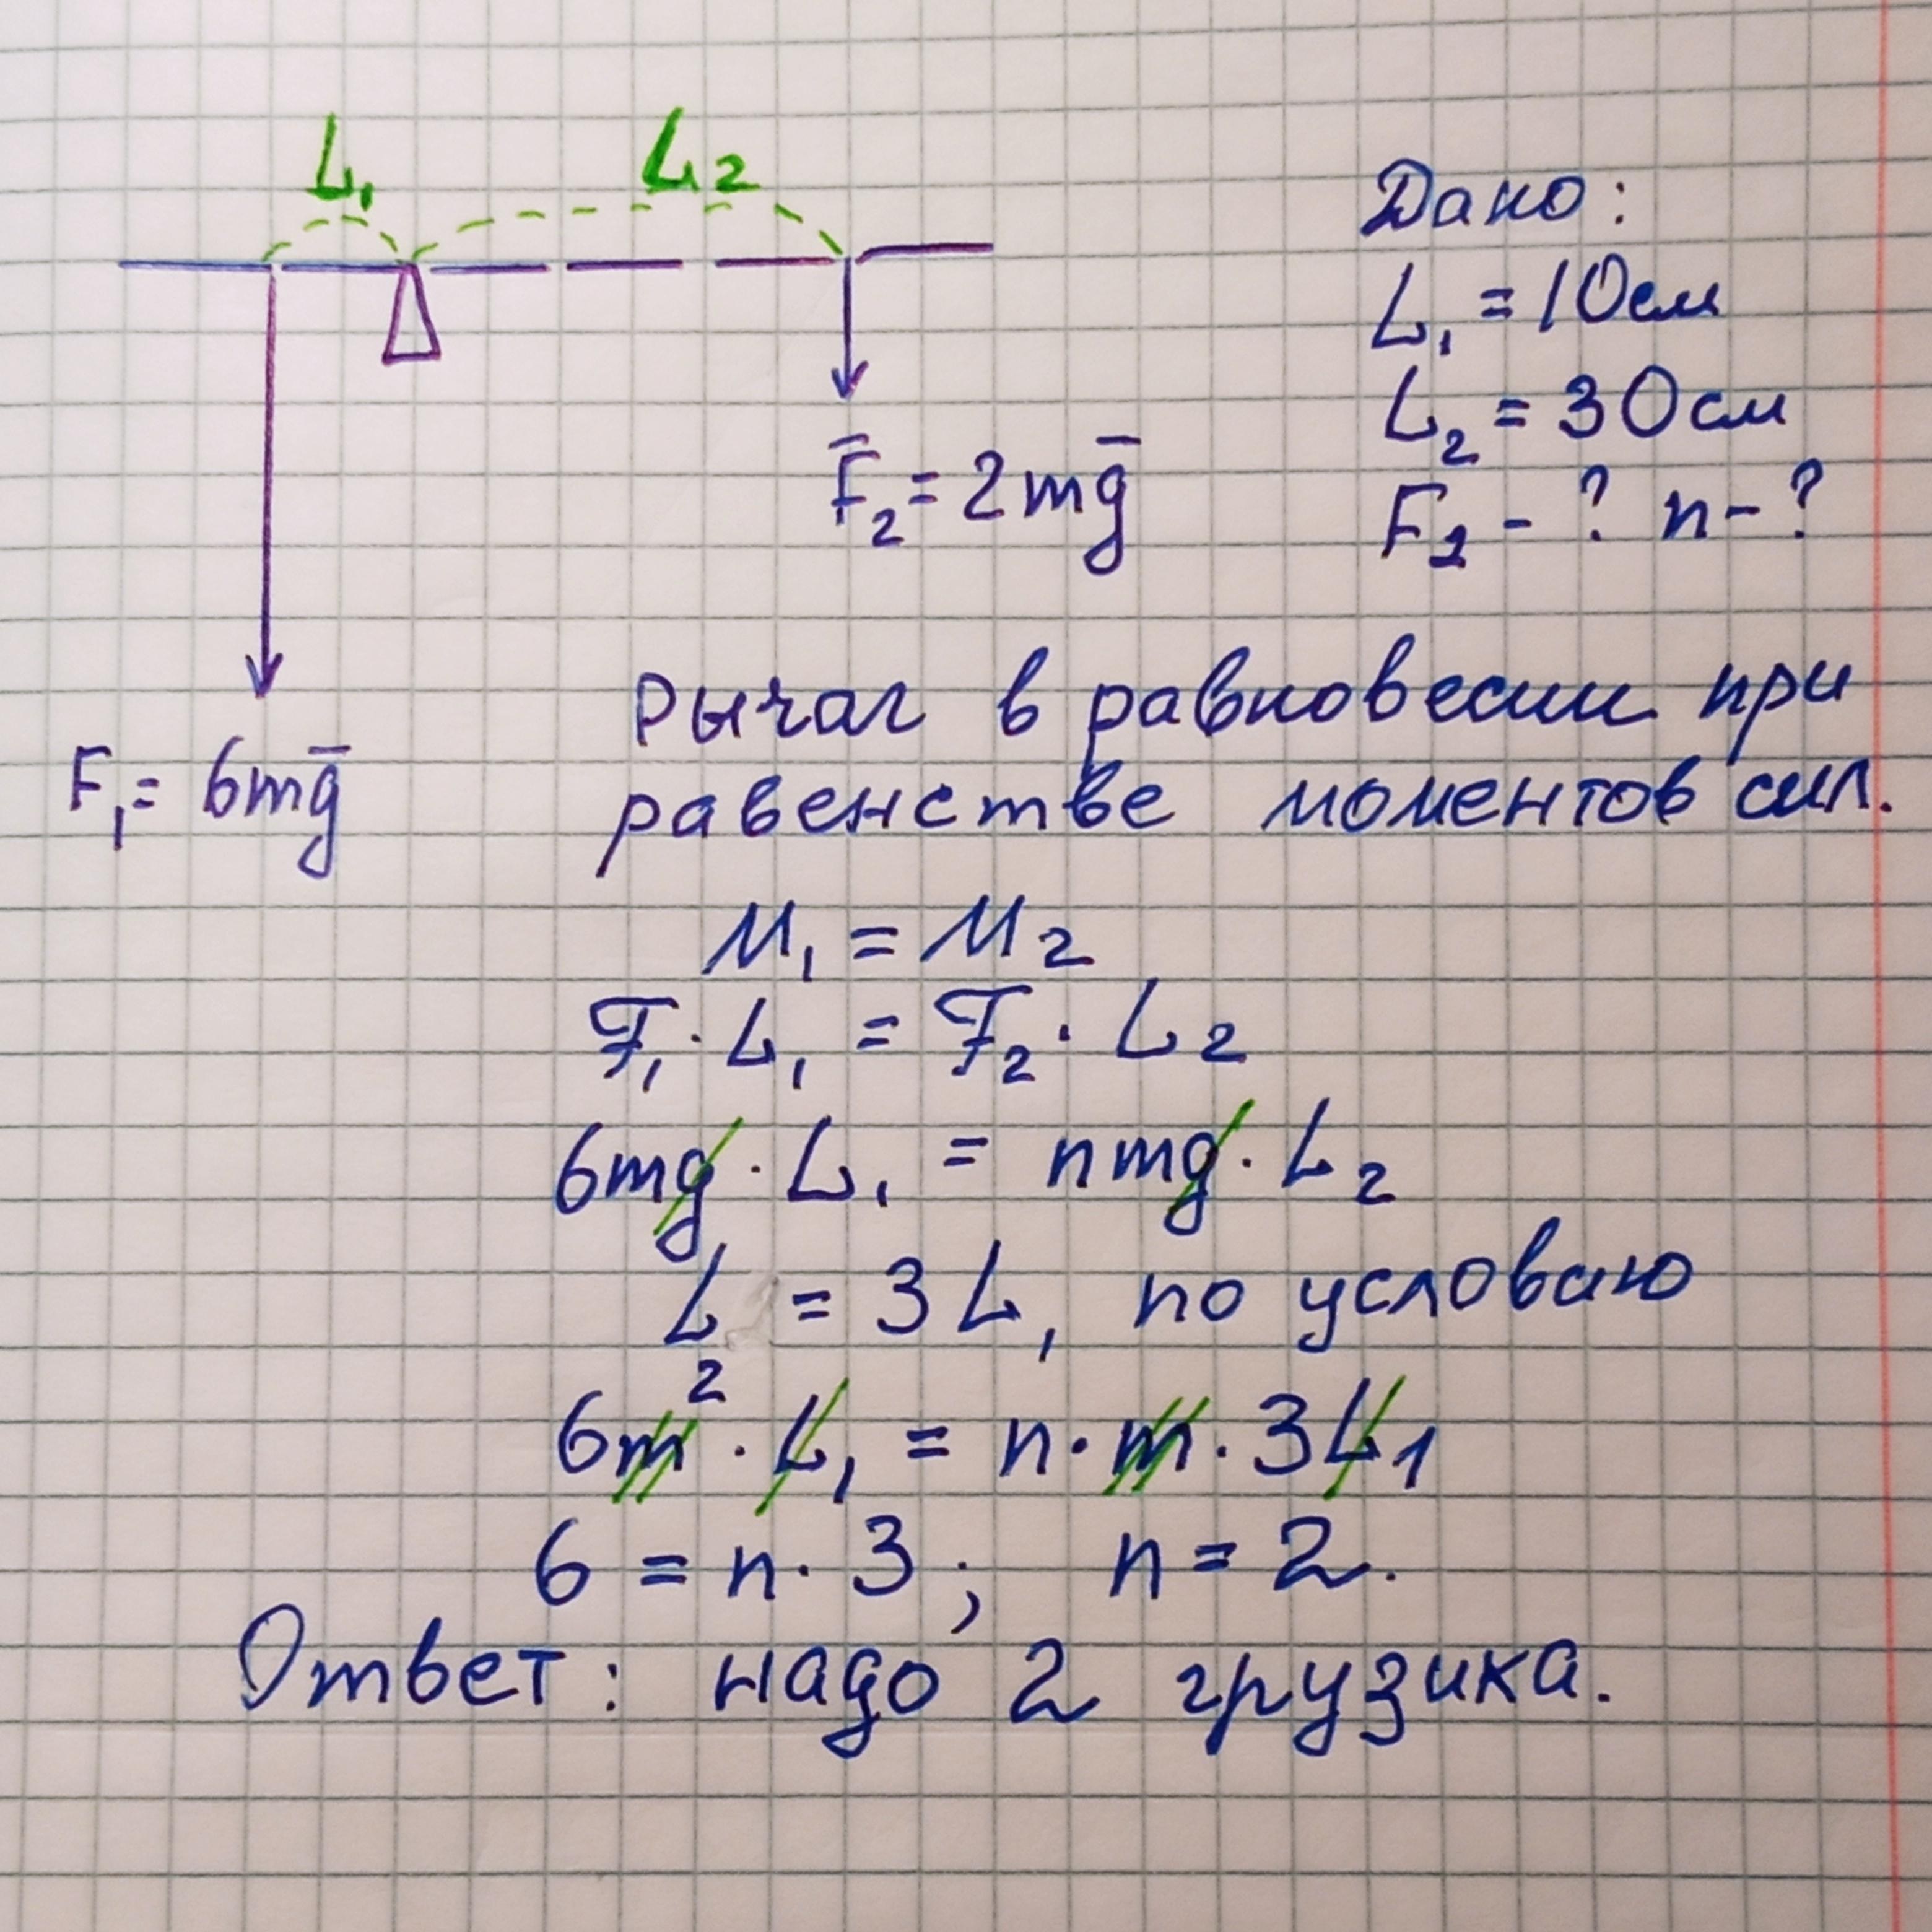 L₁ L₂
Дано:
L₁ = 10см
L₂ = 30см
F₂ - ? n - ?
F̄₂ = 2mḡ
F₁ = 6mḡ
Рычаг в равновесии при
равенстве моментов сил.
M₁ = M₂
F₁ · L₁ = F₂ · L₂
6mg · L₁ = nmg · L₂
L₂ = 3L₁ по условию
6m · L₁ = n · m · 3L₁
6 = n · 3 ; n = 2.
Ответ: надо 2 грузика.